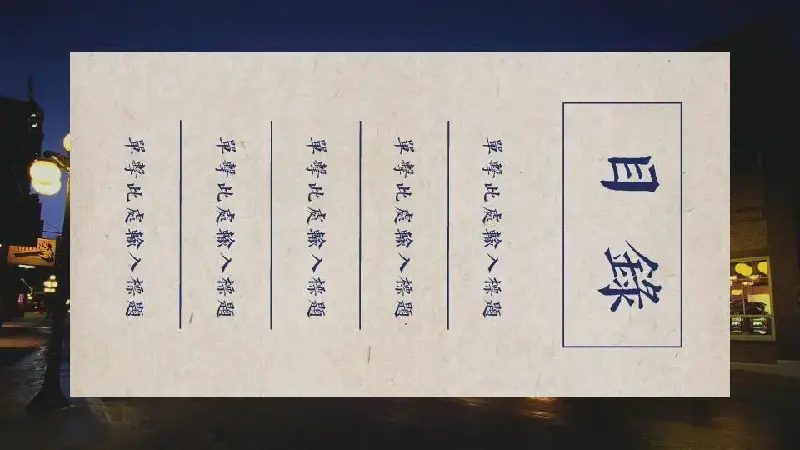 目錄
單擊此處輸入標題
單擊此處輸入標題
單擊此處輸入標題
單擊此處輸入標題
單擊此處輸入標題